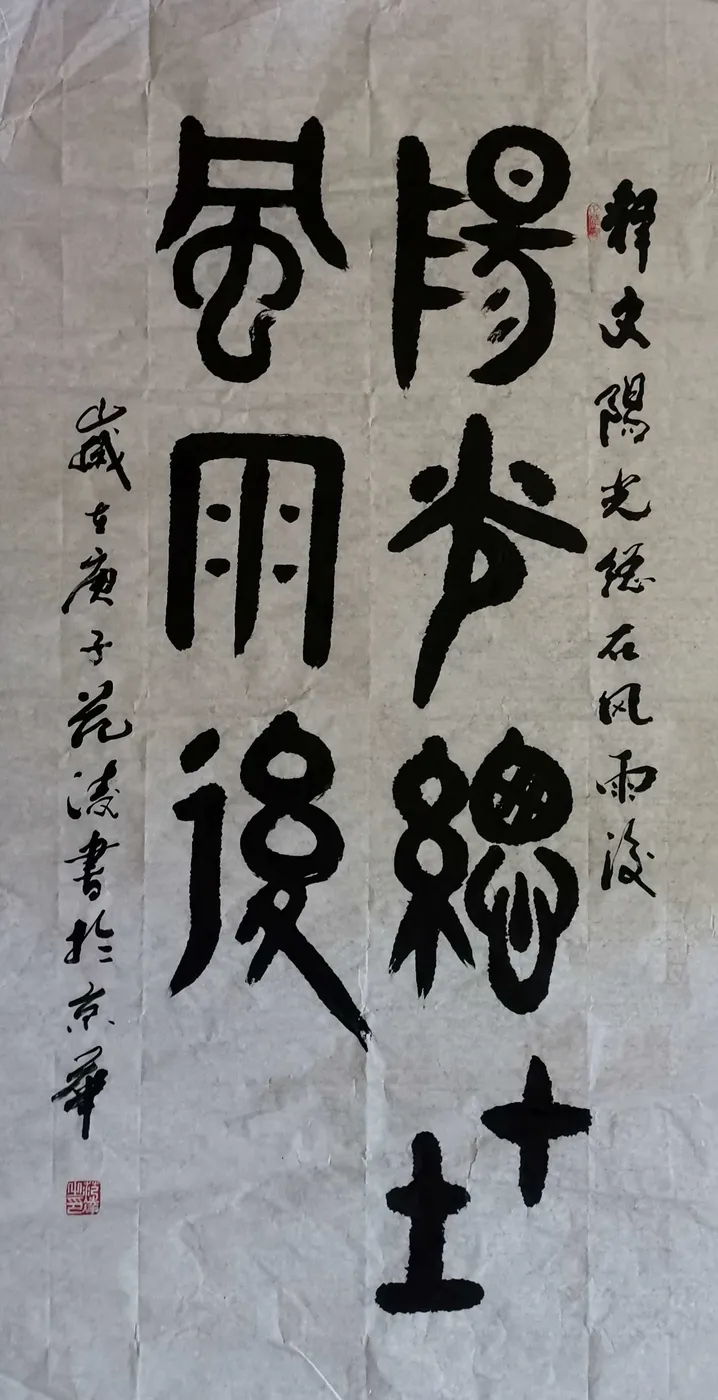 释文陽光總在风雨後
陽光總在
風雨後
歲在庚子范凌書於京華